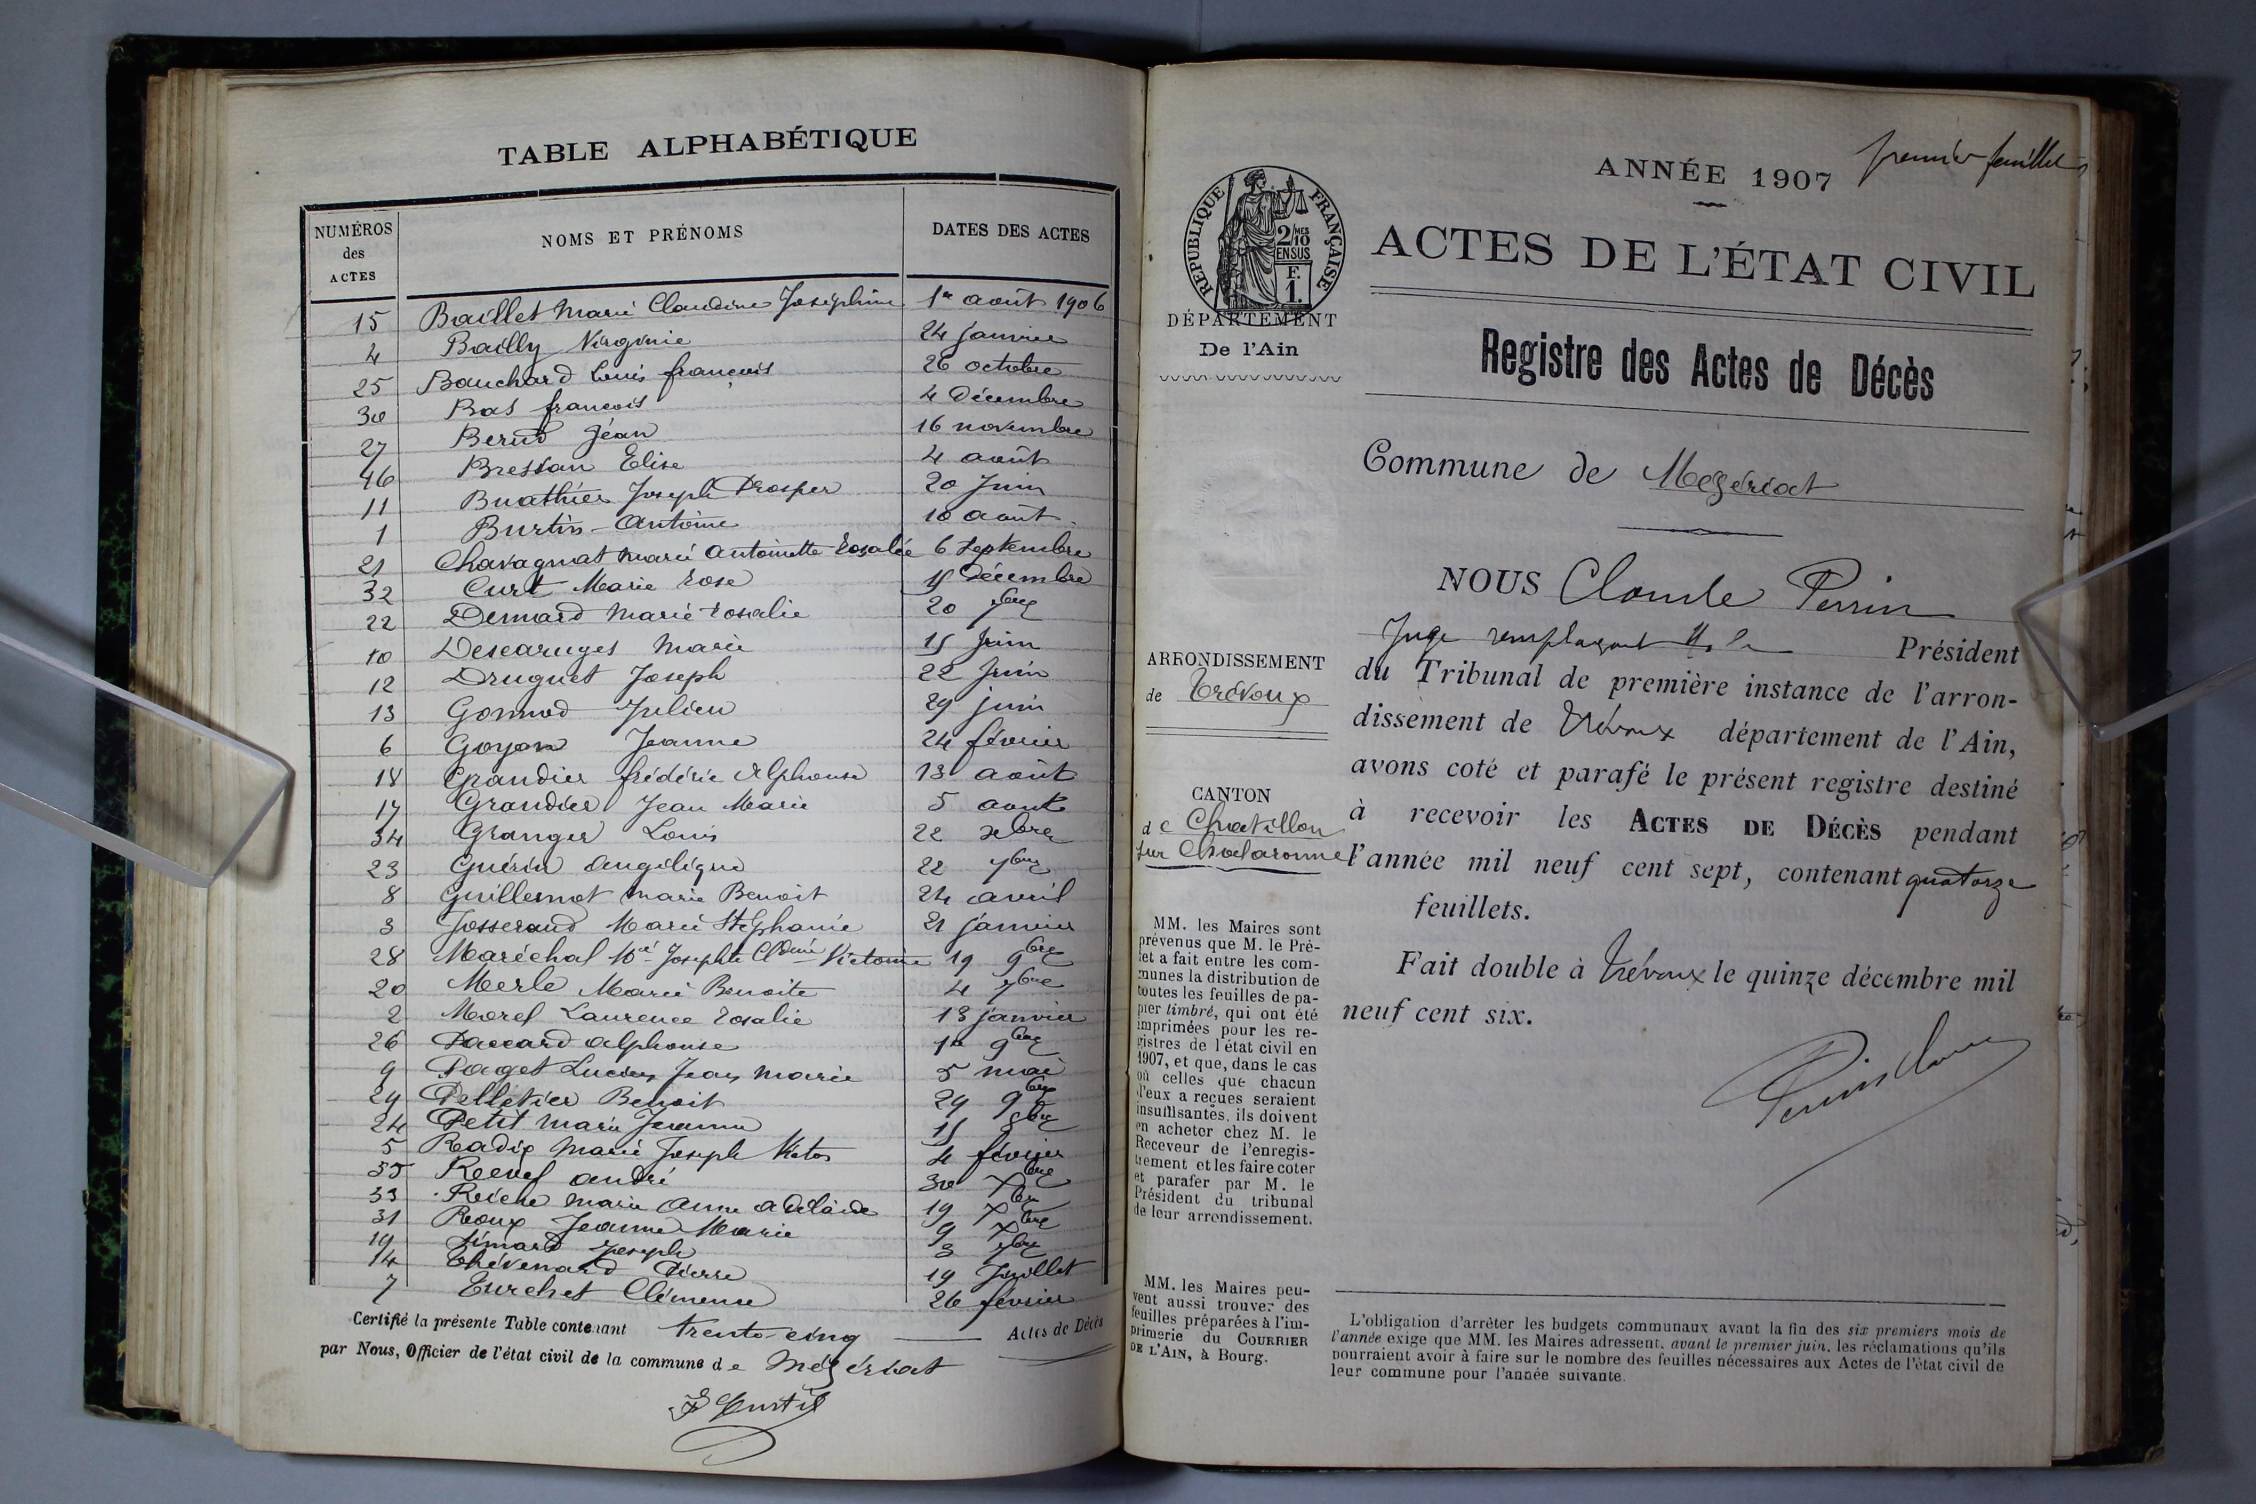 TABLE ALPHABÉTIQUE
NUMÉROS des ACTES NOMS ET PRÉNOMS DATES DES ACTES
15 Baillet Marie Claudine Joséphine 1er août 1906
4 Bailly Virginie 24 janvier
25 Bouchard Louis françois 26 octobre
30 Bas françois 4 Décembre
27 Berud Jéan 16 novembre
16 Bressan Elise 4 août
11 Buathier Joseph Prosper 20 Juin
1 Burtin Antoine 10 août
21 Chavagnat Marie Antoinette Rosalie 6 Septembre
32 Curt Marie Rose 15 Décembre
22 Dennard Marie Rosalie 20 7bre
10 Descaruges Marie 15 Juin
12 Druguet Joseph 22 Juin
13 Gonnod Julien 29 juin
6 Goyon Jeanne 24 février
18 Grandier frédéric Alphonse 13 août
17 Grandier Jean Marie 5 août
34 Granger Louis 22 xbre
23 Guérin Angélique 22 7bre
8 Guillemot Marie Benoit 24 avril
3 Josserand Marie Stéphanie 21 janvier
28 Maréchal Mie Josephte Cldine Victorine 19 9bre
20 Merle Marie Benoite 4 7bre
2 Morel Laurence Rosalie 13 janvier
26 Paccard Alphonse 1er 9bre
9 Paget Lucien Jean Marie 5 mai
29 Pelletier Benoit 29 9bre
24 Petit Marie Jeanne 15 8bre
5 Radix Marie Joseph 4 février
35 Revel André 30 Xbre
33 Reiche Marie Anne Adélaïde 19 Xbre
31 Roux Jeanne Marie 9 Xbre
19 Simard Joseph 3 7bre
14 Thévenard Pierre 19 Juillet
7 Turchet Clémence 26 février
Certifié la présente Table contenant trente-cinq Actes de Décès
par Nous, Officier de l'état civil de la commune de Mézériat
premier feuillet
ANNÉE 1907
RÉPUBLIQUE FRANÇAISE
2/10 MES
EN SUS
F.
1.
ACTES DE L'ÉTAT CIVIL
DÉPARTEMENT
De l'Ain
Registre des Actes de Décès
Commune de Mezériat
NOUS Claude Perrin
Juge remplaçant M. le Président
du Tribunal de première instance de l'arron-
dissement de Trévoux département de l'Ain,
avons coté et parafé le présent registre destiné
à recevoir les ACTES DE DÉCÈS pendant
l'année mil neuf cent sept, contenant quatorze
feuillets.
Fait double à Trévoux le quinze décembre mil
neuf cent six.
ARRONDISSEMENT
de Trévoux
CANTON
de Chatillon
sur Chalaronne
MM. les Maires sont
prévenus que M. le Pré-
fet a fait entre les com-
munes la distribution de
toutes les feuilles de pa-
pier timbré, qui ont été
imprimées pour les re-
gistres de l'état civil en
1907, et que, dans le cas
où celles que chacun
d'eux a reçues seraient
insuffisantes, ils doivent
en acheter chez M. le
Receveur de l'enregis-
trement et les faire coter
et parafer par M. le
Président du tribunal
de leur arrondissement.
MM. les Maires peu-
vent aussi trouver des
feuilles préparées à l'im-
primerie du COURRIER
DE L'AIN, à Bourg.
L'obligation d'arrêter les budgets communaux avant la fin des six premiers mois de
l'année exige que MM. les Maires adressent, avant le premier juin, les réclamations qu'ils
pourraient avoir à faire sur le nombre des feuilles nécessaires aux Actes de l'état civil de
leur commune pour l'année suivante.